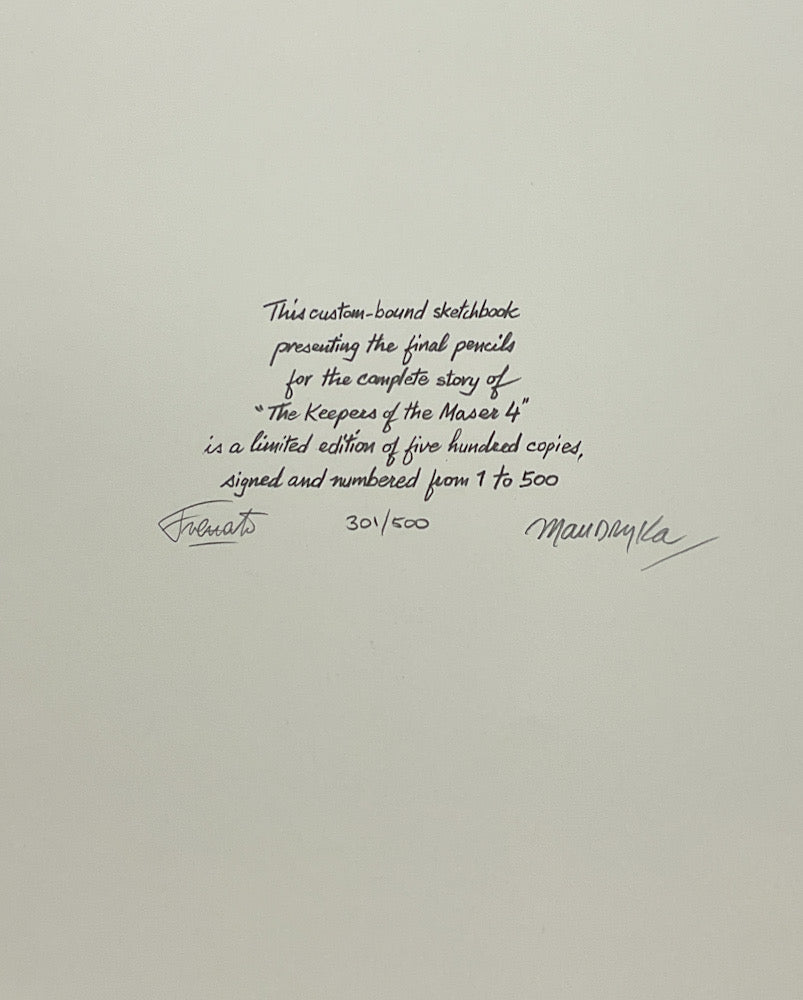 This custom-bound sketchbook
presenting the final pencils
for the complete story of
"The Keepers of the Maser 4"
is a limited edition of five hundred copies,
signed and numbered from 1 to 500
301/500 Mandryka